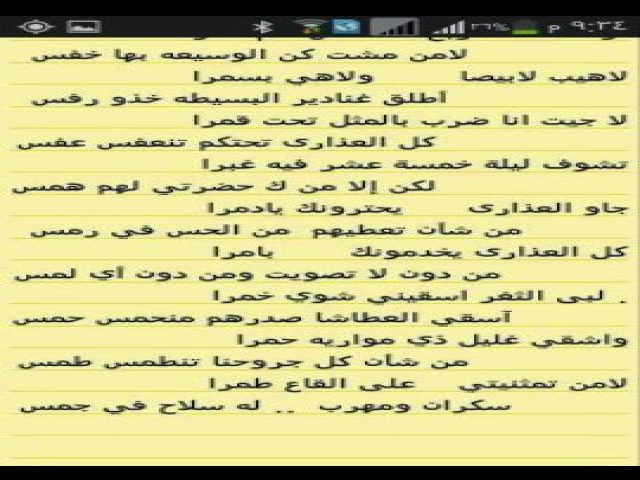 ٩:٣٤ م ٢٦%
لامن مشت كن الوسيعه بها خفس
لاهيب لابيضا ولاهي بسمرا
أطلق غنادير البسيطه خذو رفس
لا جيت انا ضرب بالمثل تحت قمرا
كل العذارى تحتكم تنعفس عفس
تشوف ليلة خمسة عشر فيه غبرا
لكن إلا من ك حضرتي لهم همس
جاو العذارى يحترونك يادمرا
من شأن تعطيهم من الحس في رمس
كل العذارى يخدمونك بامرا
من دون لا تصويت ومن دون أي لمس
. لبى الثغر اسقيني شوي خمرا
آسقي العطاشا صدرهم منحمس حمس
واشفي غليل ذي مواريه حمرا
من شأن كل جروحنا تنطمس طمس
لامن تمثنيتي على القاع طمرا
سكران ومهرب .. له سلاح في جمس